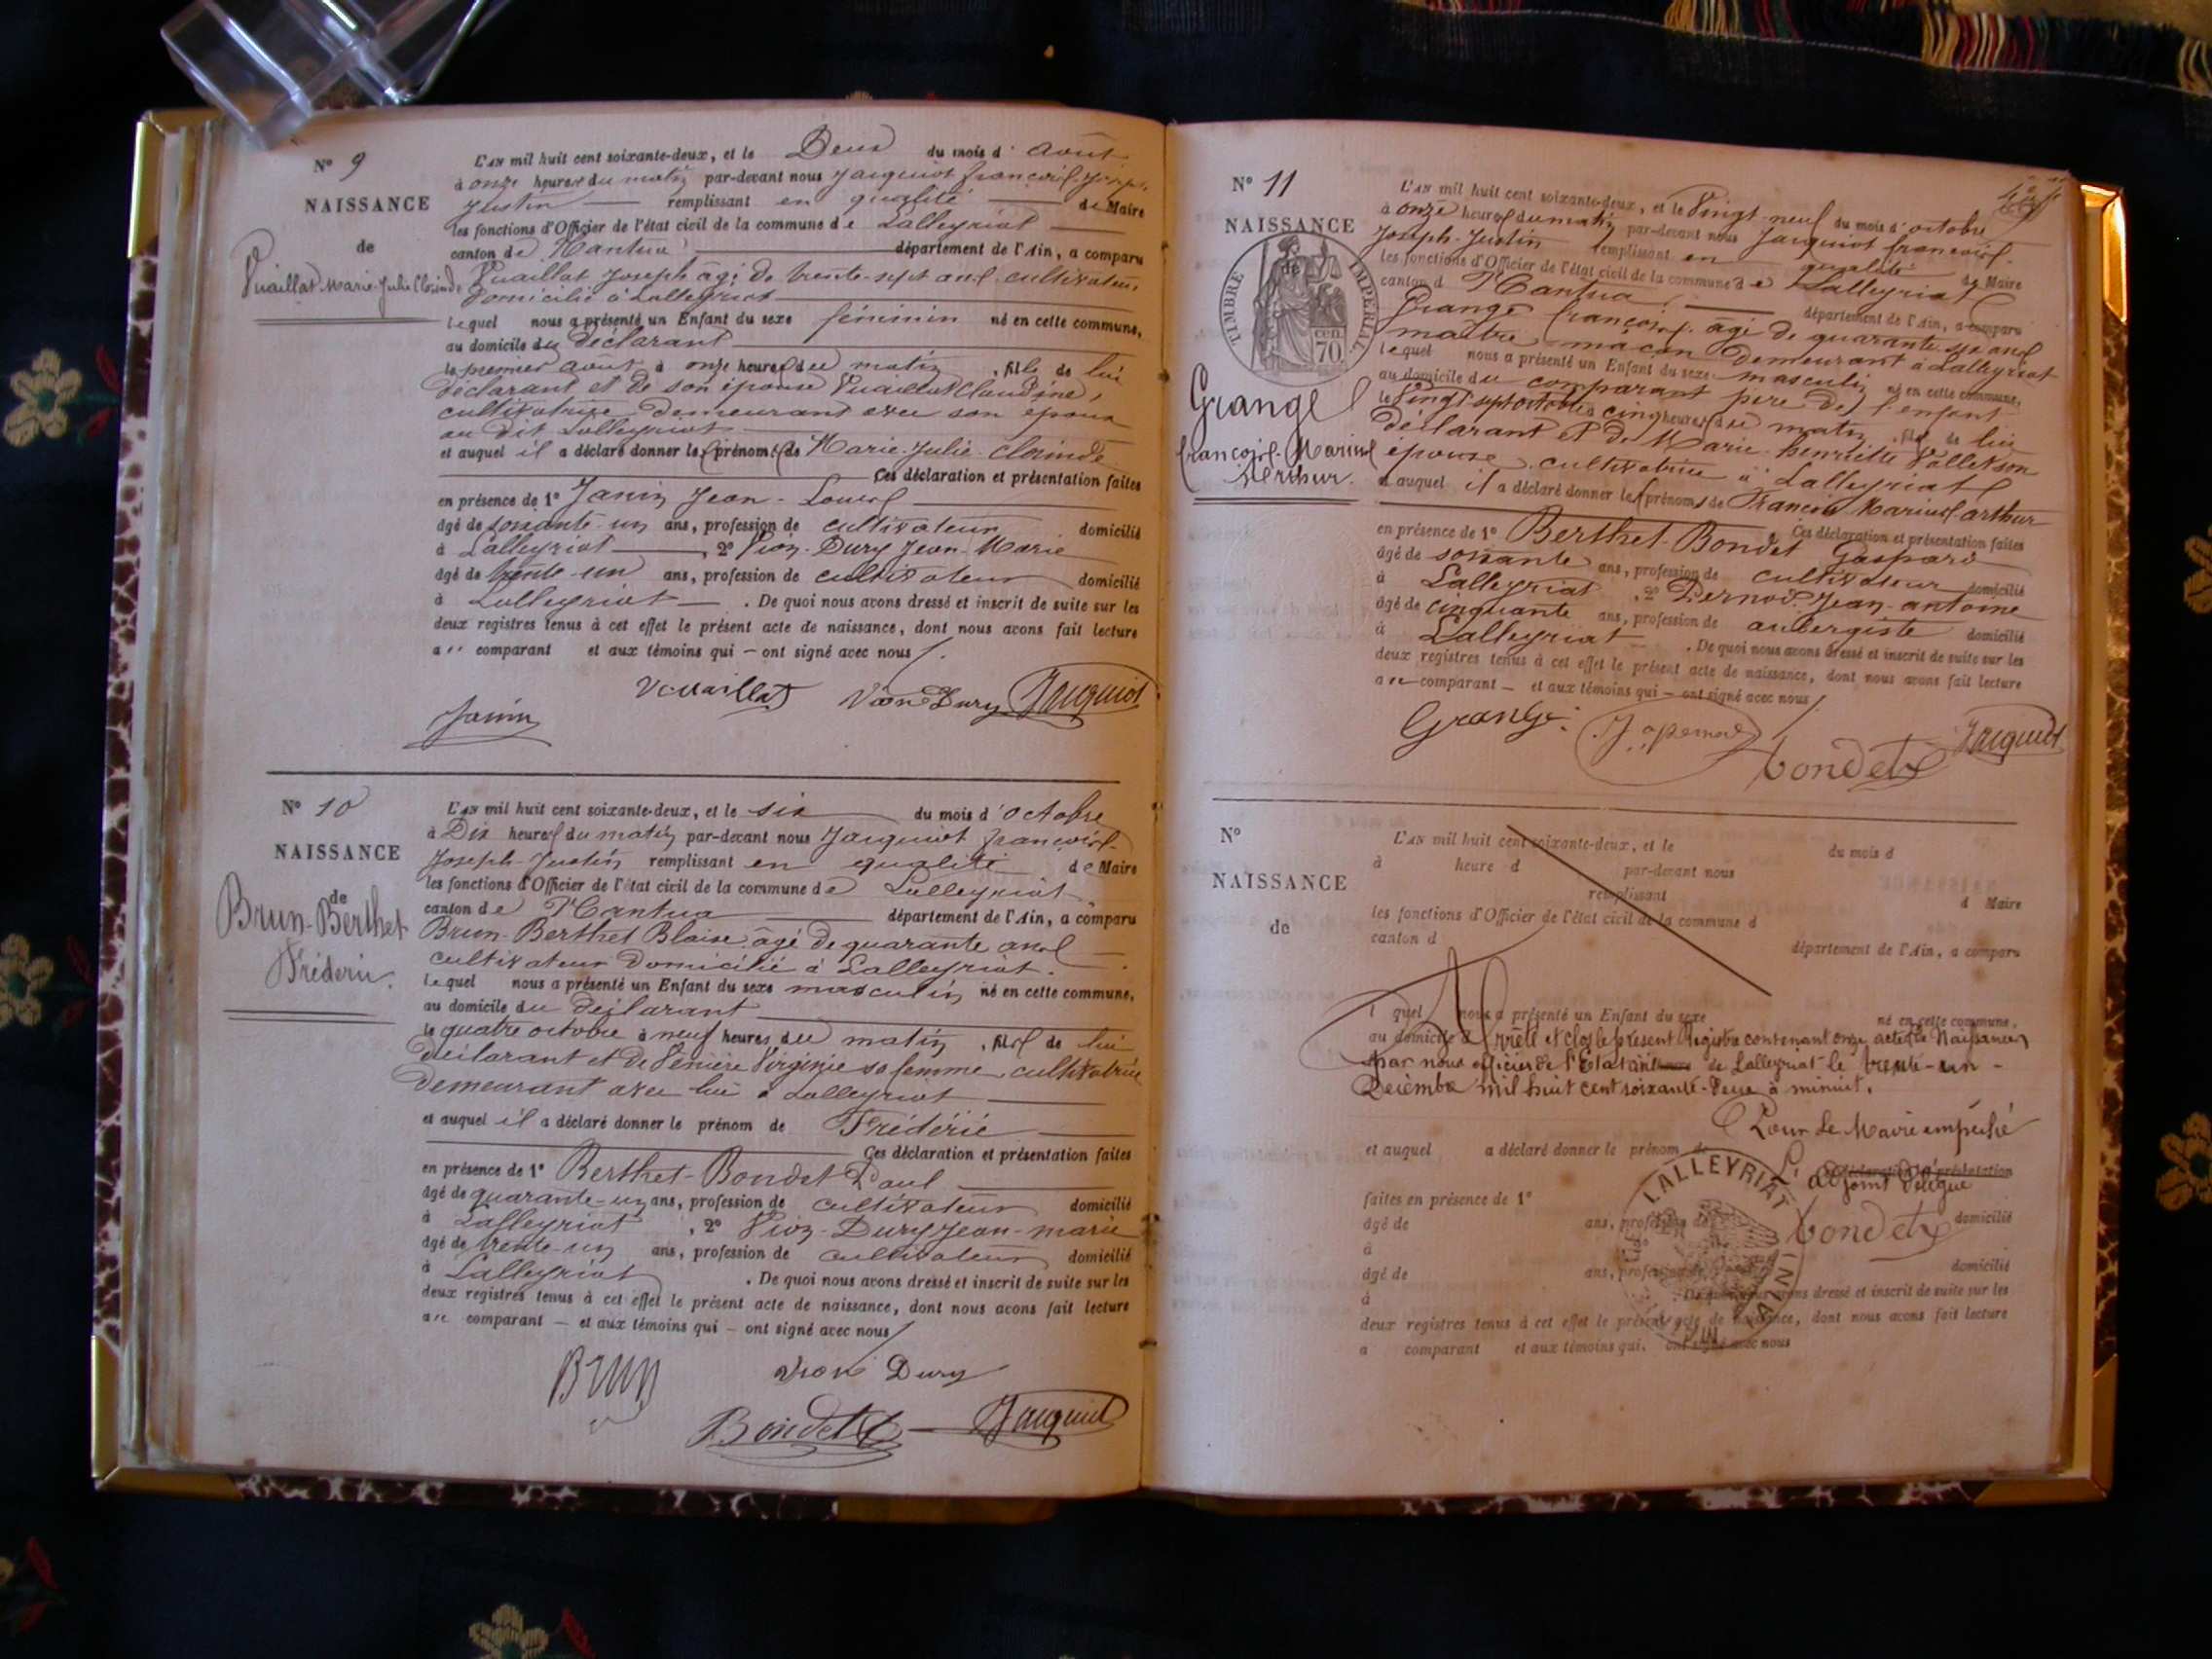 N° 9
NAISSANCE
de
Vuaillat Marie-Julie Clorinde
L'AN mil huit cent soixante-deux, et le Deux du mois d' août
à onze heures du matin par-devant nous Jacquiot françois-Joseph-
Justin — remplissant en qualité — de Maire
les fonctions d'Officier de l'état civil de la commune de Lalleyriat
canton de Nantua département de l'Ain, a comparu
Vuaillat Joseph âgé de trente-sept ans cultivateur
domicilié à Lalleyriat
lequel nous a présenté un Enfant du sexe féminin né en cette commune,
au domicile du déclarant
le premier août à onze heures du matin, fille de lui
déclarant et de son épouse Vuaillat Claudine,
cultivatrice demeurant avec son époux
au dit Lalleyriat
et auquel il a déclaré donner les prénoms de Marie-Julie-Clorinde
Ces déclaration et présentation faites
en présence de 1° Janin Jean-Louis
âgé de soixante-un ans, profession de cultivateur domicilié
à Lalleyriat —, 2° Vion-Dury Jean-Marie
âgé de trente-un ans, profession de cultivateur domicilié
à Lalleyriat — . De quoi nous avons dressé et inscrit de suite sur les
deux registres tenus à cet effet le présent acte de naissance, dont nous avons fait lecture
au comparant et aux témoins qui — ont signé avec nous
Vuaillat Vion Dury Jacquiot
Janin
N° 10
NAISSANCE
de
Brun-Berthet
Frédéric.
L'AN mil huit cent soixante-deux, et le six du mois d' octobre
à Dix heures du matin par-devant nous Jacquiot françois-
Joseph-Justin remplissant en qualité de Maire
les fonctions d'Officier de l'état civil de la commune de Lalleyriat
canton de Nantua département de l'Ain, a comparu
Brun-Berthet Blaise âgé de quarante ans
cultivateur domicilié à Lalleyriat.
lequel nous a présenté un Enfant du sexe masculin né en cette commune,
au domicile du déclarant
le quatre octobre à neuf heures du matin, fils de lui
déclarant et de Virginie sa femme cultivatrice
demeurant avec lui à Lalleyriat
et auquel il a déclaré donner le prénom de Frédéric
Ces déclaration et présentation faites
en présence de 1° Berthet-Bondet Paul
âgé de quarante-un ans, profession de cultivateur domicilié
à Lalleyriat, 2° Vion-Dury Jean-marie
âgé de trente-un ans, profession de cultivateur domicilié
à Lalleyriat . De quoi nous avons dressé et inscrit de suite sur les
deux registres tenus à cet effet le présent acte de naissance, dont nous avons fait lecture
au comparant — et aux témoins qui — ont signé avec nous
Brun Vion Dury
Bondet Jacquiot
N° 11
NAISSANCE
de
TIMBRE IMPÉRIAL
70 cen
Grange
françois-Marius
Arthur.
L'AN mil huit cent soixante-deux, et le Vingt-neuf du mois d' octobre
à onze heures du matin par-devant nous Jacquiot françois-
Joseph-Justin remplissant en qualité de Maire
les fonctions d'Officier de l'état civil de la commune de Lalleyriat
canton d Nantua département de l'Ain, a comparu
Grange françois âgé de quarante-six ans
maître maçon demeurant à Lalleyriat
lequel nous a présenté un Enfant du sexe masculin né en cette commune,
au domicile du comparant père de l'enfant
le Vingt-sept octobre à cinq heures du matin, fils de lui
déclarant et de Marie-henriette Vollet son
épouse cultivatrice à Lalleyriat
et auquel il a déclaré donner les prénoms de François Marius arthur
Ces déclaration et présentation faites
en présence de 1° Berthet-Bondet Gaspard
âgé de soixante ans, profession de cultivateur domicilié
à Lalleyriat, 2° Pernod Jean-antoine
âgé de cinquante ans, profession de aubergiste domicilié
à Lalleyriat — . De quoi nous avons dressé et inscrit de suite sur les
deux registres tenus à cet effet le présent acte de naissance, dont nous avons fait lecture
au comparant — et aux témoins qui — ont signé avec nous
Grange J. a pernod Jacquiot
bondet
N°
NAISSANCE
de
L'AN mil huit cent soixante-deux, et le du mois d
à heure d par-devant nous
remplissant d Maire
les fonctions d'Officier de l'état civil de la commune d
canton d département de l'Ain, a comparu
l quel nous a présenté un Enfant du sexe né en cette commune,
au domicile d
Arrêté et clos le présent Registre contenant onze actes de Naissances
par nous officier de l'Etat civil de Lalleyriat le trente-un
Décembre mil huit cent soixante-deux à minuit.
Pour Le Maire empêché
et auquel a déclaré donner le prénom de
L' adjoint délégué
déclaration et présentation
faites en présence de 1°
bondet
âgé de ans, profession de domicilié
à
âgé de ans, profession domicilié
à . De quoi nous avons dressé et inscrit de suite sur les
deux registres tenus à cet effet le présent acte de naissance, dont nous avons fait lecture
a comparant et aux témoins qui. ont signé avec nous
LALLEYRIAT
AIN